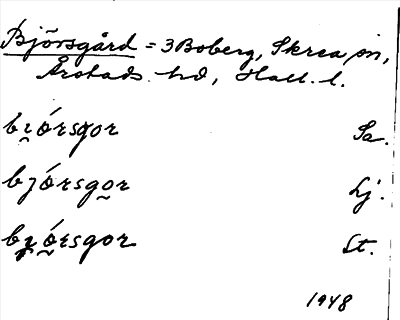 Björsgård = 3 Boberg, Skrea sn,
Årstads hd, Hall. l.
bi̯órsgor Sa.
bjórsgo̰r Lj.
bi̯ó̰rsgor Lt.
1948